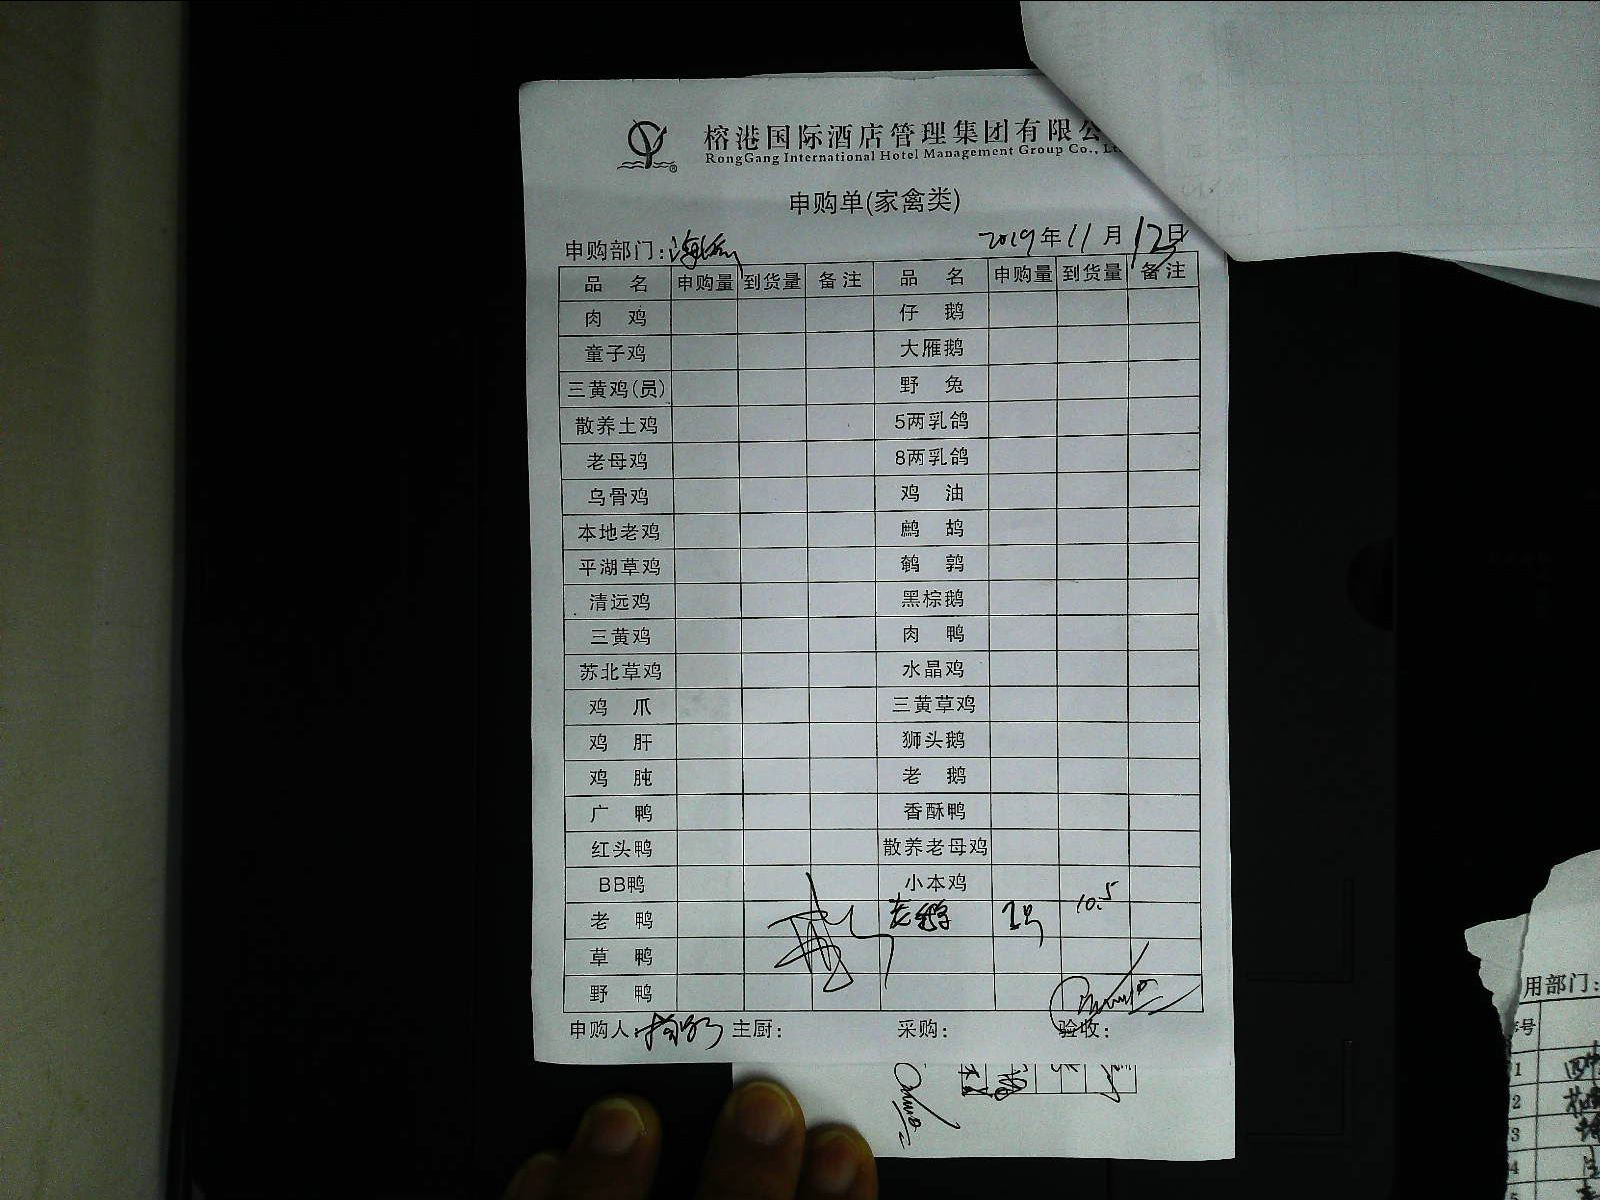 榕港国际酒店管理集团有限公
RongGang International Hotel Management Group Co., Lt
申购单(家禽类)
申购部门: 2019年11月12日
品 名 申购量 到货量 备注 品 名 申购量 到货量 备注
肉 鸡 仔 鹅
童子鸡 大雁鹅
三黄鸡(员) 野 兔
散养土鸡 5两乳鸽
老母鸡 8两乳鸽
乌骨鸡 鸡 油
本地老鸡 鹧 鸪
平湖草鸡 鹌 鹑
清远鸡 黑棕鹅
三黄鸡 肉 鸭
苏北草鸡 水晶鸡
鸡 爪 三黄草鸡
鸡 肝 狮头鹅
鸡 肫 老 鹅
广 鸭 香酥鸭
红头鸭 散养老母鸡
BB鸭 小本鸡
老 鸭 老鹅 10.5
草 鸭
野 鸭
申购人 主厨: 采购: 验收:
用部门:
序号
1
2
3
4